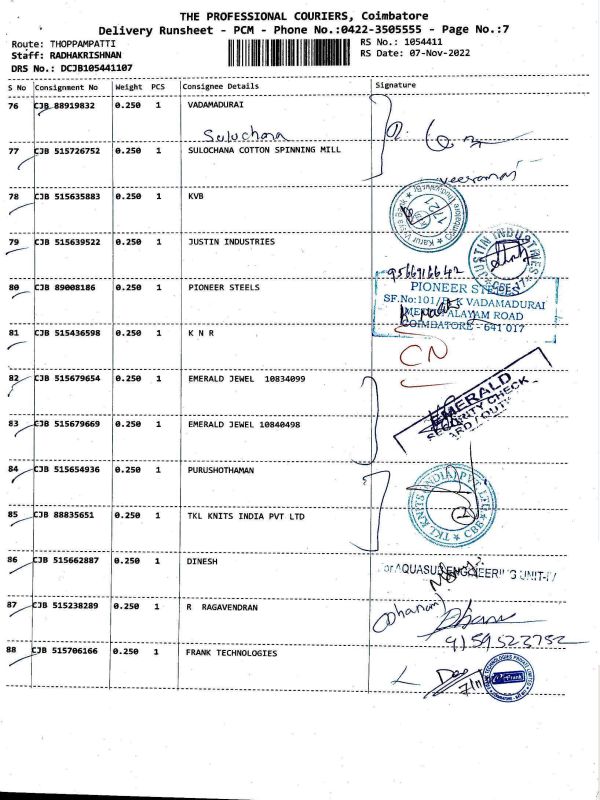 THE PROFESSIONAL COURIERS, Coimbatore
Delivery Runsheet - PCM - Phone No.:0422-3505555 - Page No.:7
Route: THOPPAMPATTI RS No.: 1054411
Staff: RADHAKRISHNAN RS Date: 07-Nov-2022
DRS No.: DCJB105441107
S No Consignment No Weight PCS Consignee Details Signature
76 CJB 88919832 0.250 1 VADAMADURAI
Sulochana
77 CJB 515726752 0.250 1 SULOCHANA COTTON SPINNING MILL
veeramani
78 CJB 515635883 0.250 1 KVB
79 CJB 515639522 0.250 1 JUSTIN INDUSTRIES
JUSTIN INDUSTRIES
9566916642
80 CJB 89008186 0.250 1 PIONEER STEELS
PIONEER STEELS
SF.No:101/ K VADAMADURAI
ALAYAM ROAD
COIMBATORE - 641 017
81 CJB 515436598 0.250 1 K N R
CN
82 CJB 515679654 0.250 1 EMERALD JEWEL 10834099
EMERALD
SECURITY CHECK
83 CJB 515679669 0.250 1 EMERALD JEWEL 10840498
84 CJB 515654936 0.250 1 PURUSHOTHAMAN
TKL KNITS (INDIA) PVT LTD
CBE
85 CJB 88835651 0.250 1 TKL KNITS INDIA PVT LTD
86 CJB 515662887 0.250 1 DINESH
For AQUASUB ENGINEERING UNIT-IV
87 CJB 515238289 0.250 1 R RAGAVENDRAN
(Dhanam)
9159523752
88 CJB 515706166 0.250 1 FRANK TECHNOLOGIES